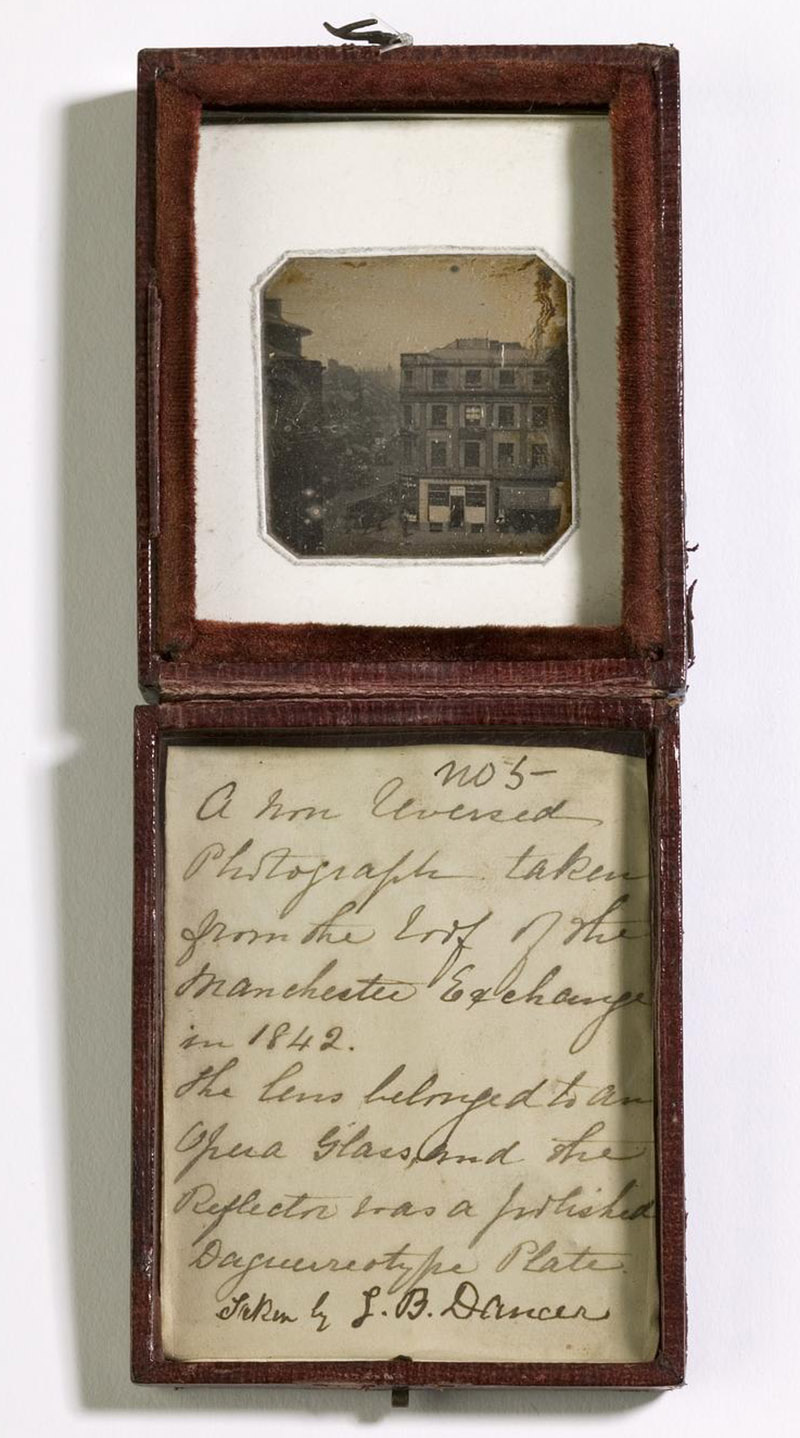 no 5-
A Non Reversed
Photograph taken
from the roof of the
Manchester Exchange
in 1842.
The lens belonged to an
Opera Glass, and the
Reflector was a polished
Daguerreotype Plate.
Taken by J. B. Dancer